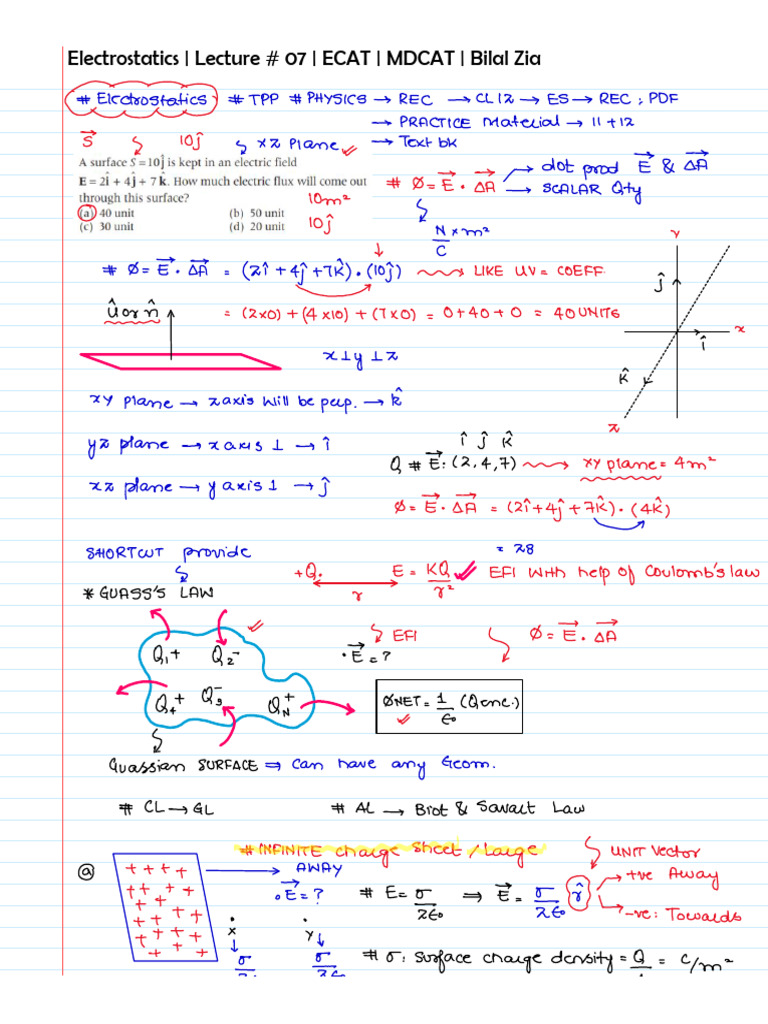 Electrostatics | Lecture # 07 | ECAT | MDCAT | Bilal Zia
# Electrostatics # TPP # PHYSICS → REC → CL12 → ES → REC ; PDF
→ PRACTICE Material → 11 + 12
→ Text bk
S⃗ 10ĵ xz plane ✓
A surface S = 10ĵ is kept in an electric field
E = 2î + 4ĵ + 7k̂. How much electric flux will come out
through this surface?
(a) 40 unit (b) 50 unit
(c) 30 unit (d) 20 unit
10m²
10ĵ
# Ø = E⃗ . ΔA⃗ → dot prod E⃗ & ΔA⃗
→ SCALAR Qty
N/C × m²
# Ø = E⃗ . ΔA⃗ = (2î + 4ĵ + 7k̂) . (10ĵ) LIKE UV = COEFF
= (2×0) + (4×10) + (7×0) = 0 + 40 + 0 = 40 UNITS
û or n̂
y
ĵ
x
î
k̂
z
x ⊥ y ⊥ z
xy plane → z axis will be perp. → k̂
yz plane → x axis ⊥ → î
xz plane → y axis ⊥ → ĵ
î ĵ k̂
Q # E⃗ : (2, 4, 7) xy plane = 4m²
Ø = E⃗ . ΔA⃗ = (2î + 4ĵ + 7k̂) . (4k̂)
= 28
SHORTCUT provide
* GUASS'S LAW
+Q. r E = KQ/r² ✓ EFI with help of Coulomb's law
EFI
.E⃗ = ?
Ø = E⃗ . ΔA⃗
Q₁+ Q₂-
Q₄+ Q₃- Q_N+
ØNET = 1/ε₀ (Qenc.)
✓
Guassian SURFACE ⇒ Can have any Geom.
# CL → GL # AL → Biot & Savart Law
# INFINITE charge Sheet / Large
UNIT Vector
(a)
+ + + +
AWAY
.E⃗ = ?
# E = σ/2ε₀ ⇒ E⃗ = σ/2ε₀ r̂
+ve Away
-ve: Towards
x y
# σ: surface charge density = Q = C/m²